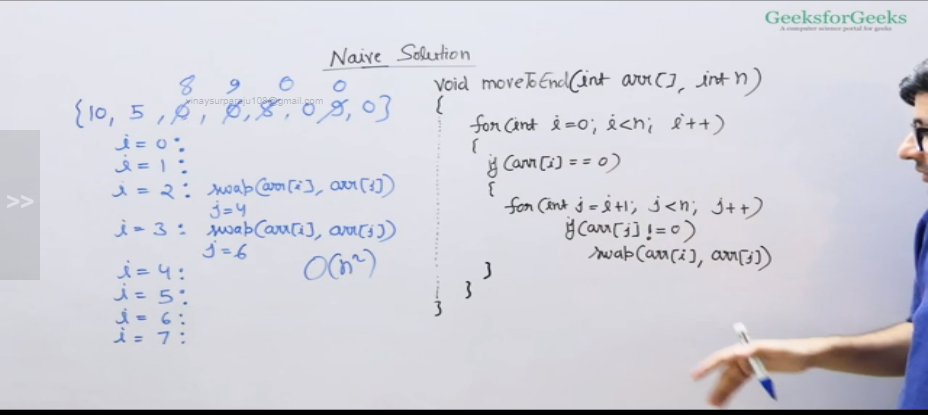 GeeksforGeeks
A computer science portal for geeks
Naive Solution
8 9 0 0
{10, 5, 0, 0, 8, 0 9, 0}
i = 0:
i = 1:
i = 2: swap(arr[i], arr[j])
j=4
i = 3: swap(arr[i], arr[j])
j=6
O(n²)
i = 4:
i = 5:
i = 6:
i = 7:
void moveToEnd(int arr[], int n)
{
for(int i=0; i<n; i++)
{
if (arr[i] == 0)
{
for(int j = i+1; j<n; j++)
if(arr[j] != 0)
swap(arr[i], arr[j])
}
}
}
>>